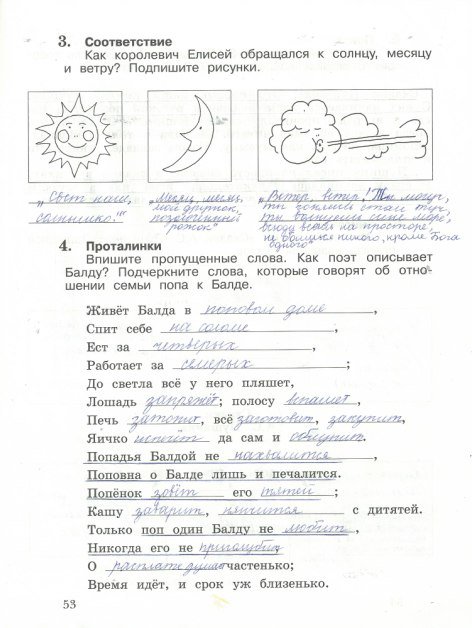 3. Соответствие
Как королевич Елисей обращался к солнцу, месяцу
и ветру? Подпишите рисунки.
„Свет наш,
солнышко!"
„Месяц, месяц,
мой дружок,
позолоченный
рожок"
„Ветер, ветер! Ты могуч,
ты гоняешь стаи туч,
ты волнуешь сине море,
всюду веешь на просторе,
не боишься никого, кроме Бога
одного"
4. Проталинки
Впишите пропущенные слова. Как поэт описывает
Балду? Подчеркните слова, которые говорят об отно-
шении семьи попа к Балде.
Живёт Балда в поповом доме,
Спит себе на соломе,
Ест за четверых,
Работает за семерых;
До светла всё у него пляшет,
Лошадь запряжёт; полосу вспашет,
Печь затопит, всё заготовит, закупит,
Яичко испечёт да сам и облупит.
Попадья Балдой не нахвалится,
Поповна о Балде лишь и печалится.
Попёнок зовёт его тятей;
Кашу заварит, нянчится с дитятей.
Только поп один Балду не любит,
Никогда его не приголубит
О расплате думает частенько;
Время идёт, и срок уж близенько.
53